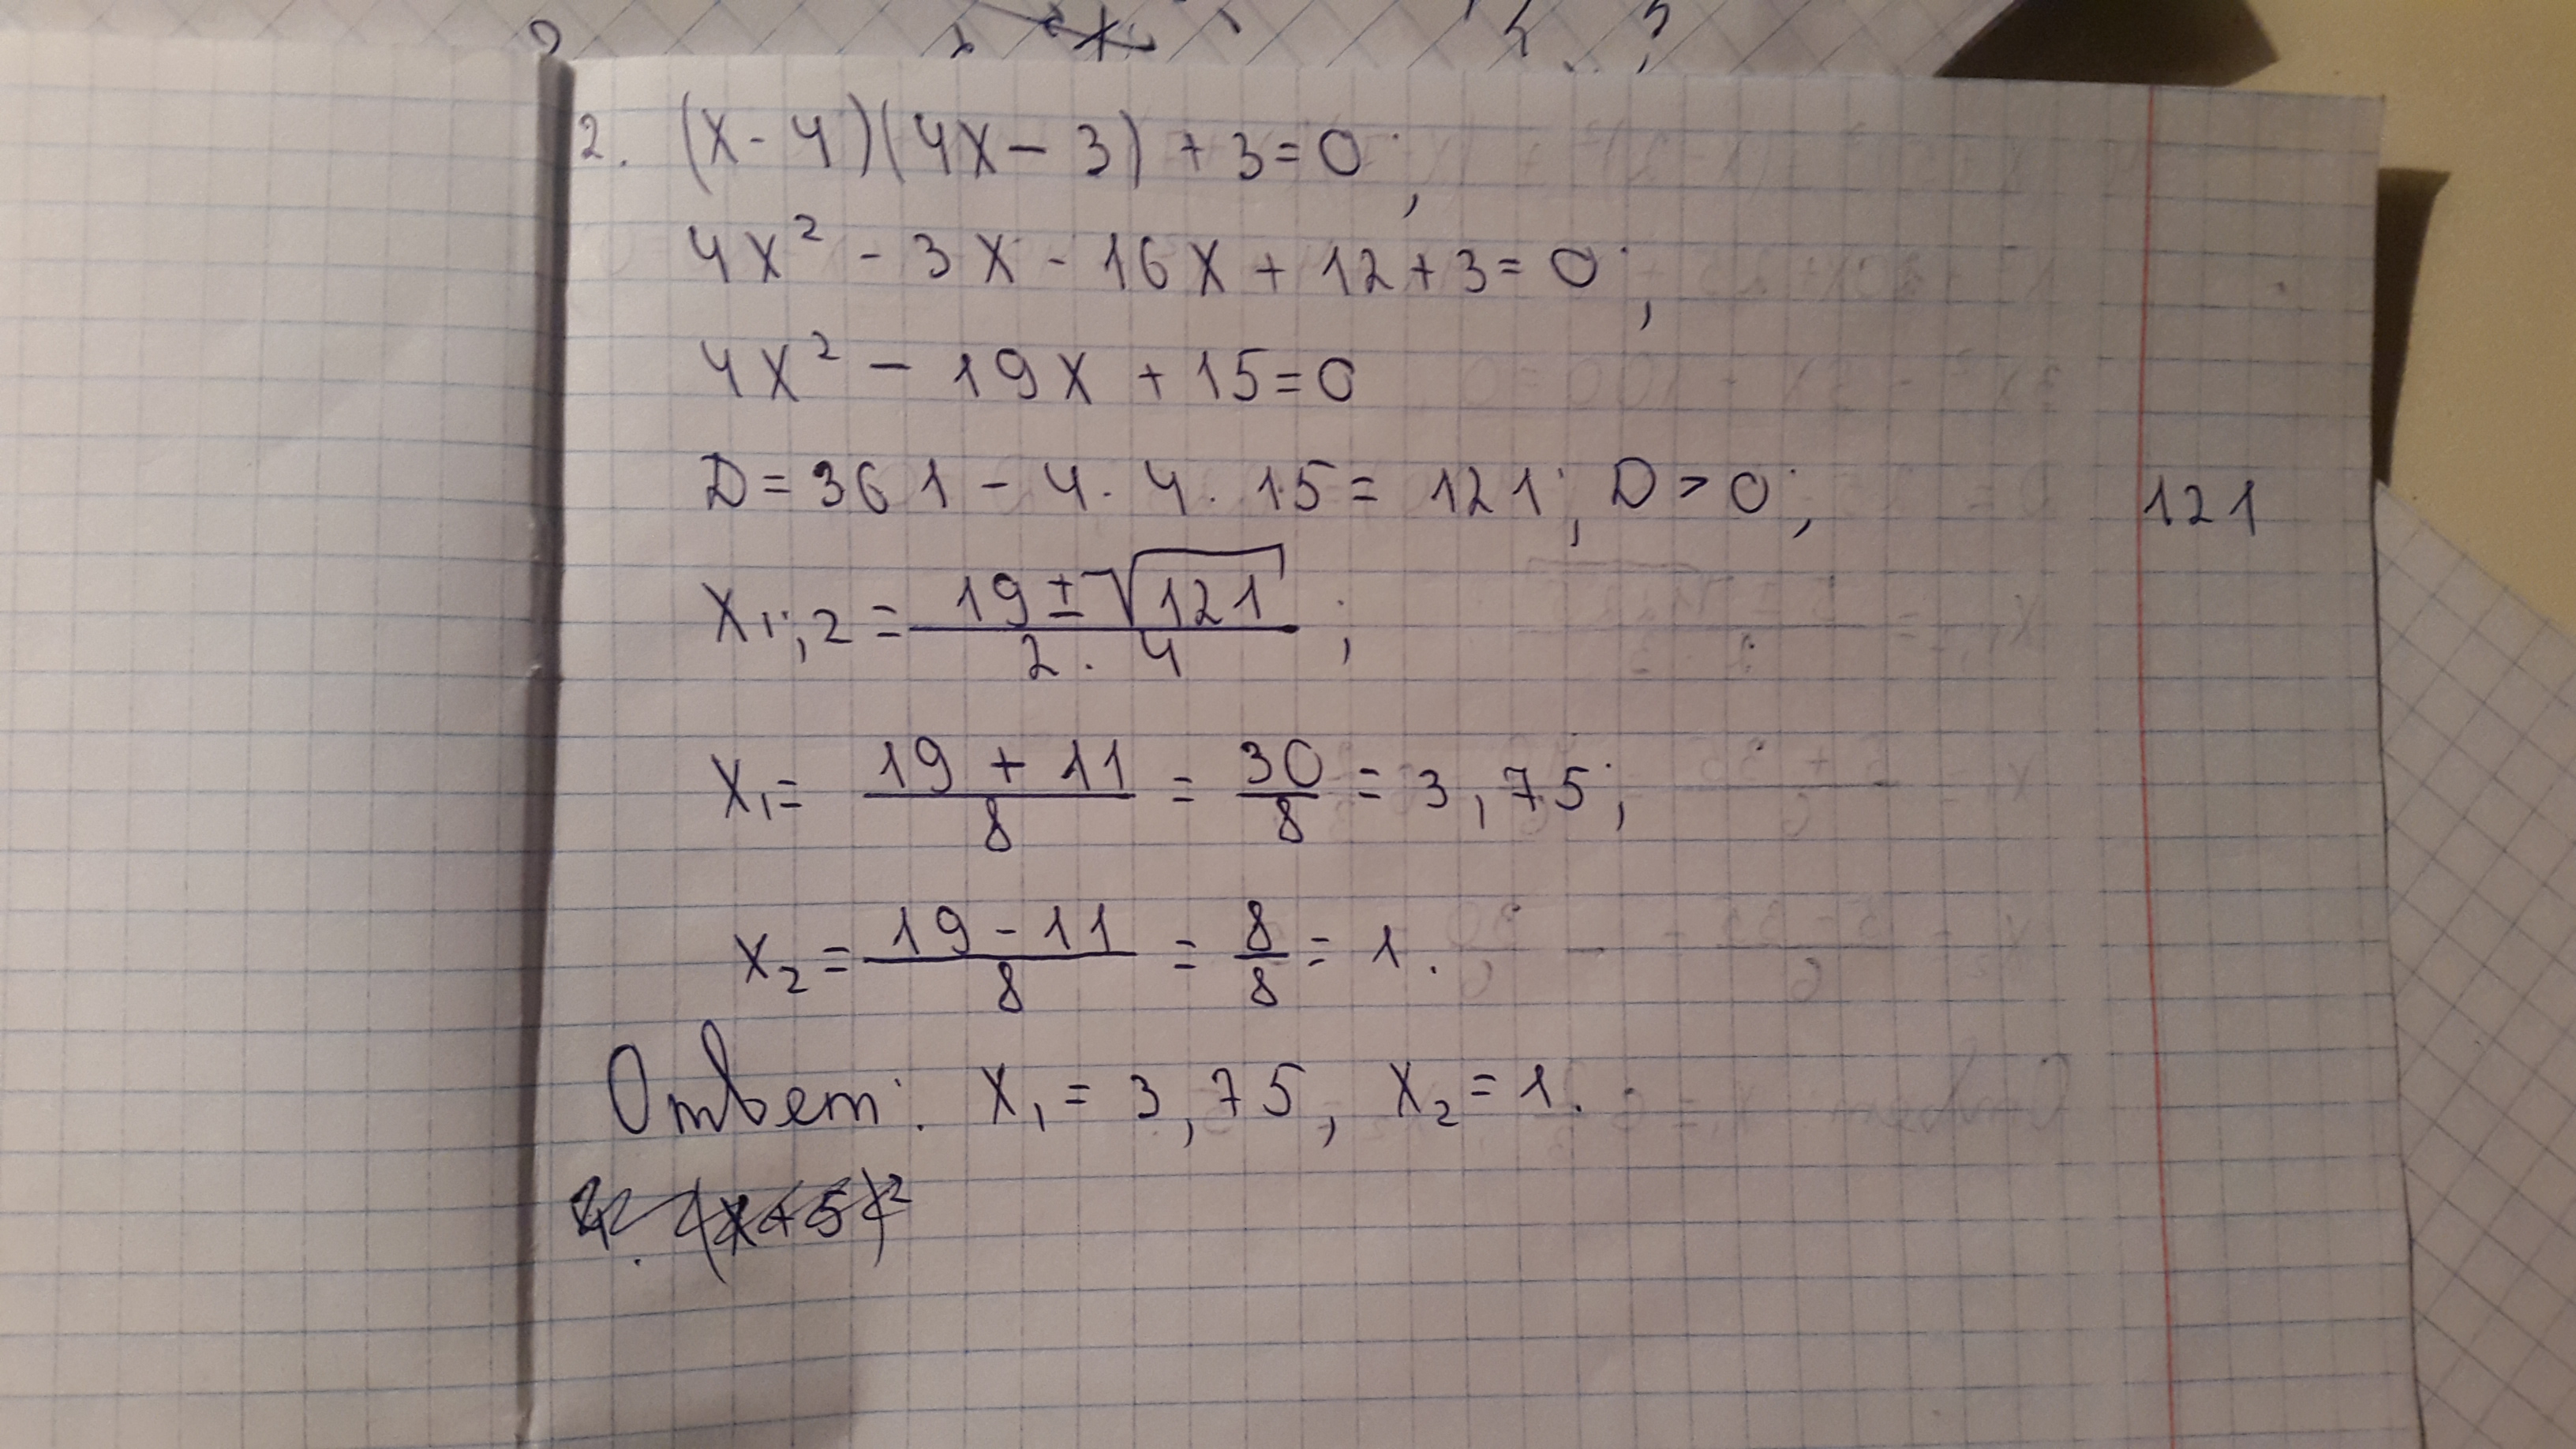 2. (x-4)(4x-3)+3=0;
4x²-3x-16x+12+3=0;
4x²-19x+15=0
D=361-4·4·15=121; D>0;
121
x₁;₂=(19±√121)/(2·4);
x₁=(19+11)/8=30/8=3,75;
x₂=(19-11)/8=8/8=1.
Ответ: x₁=3,75, x₂=1.
(x+5)²